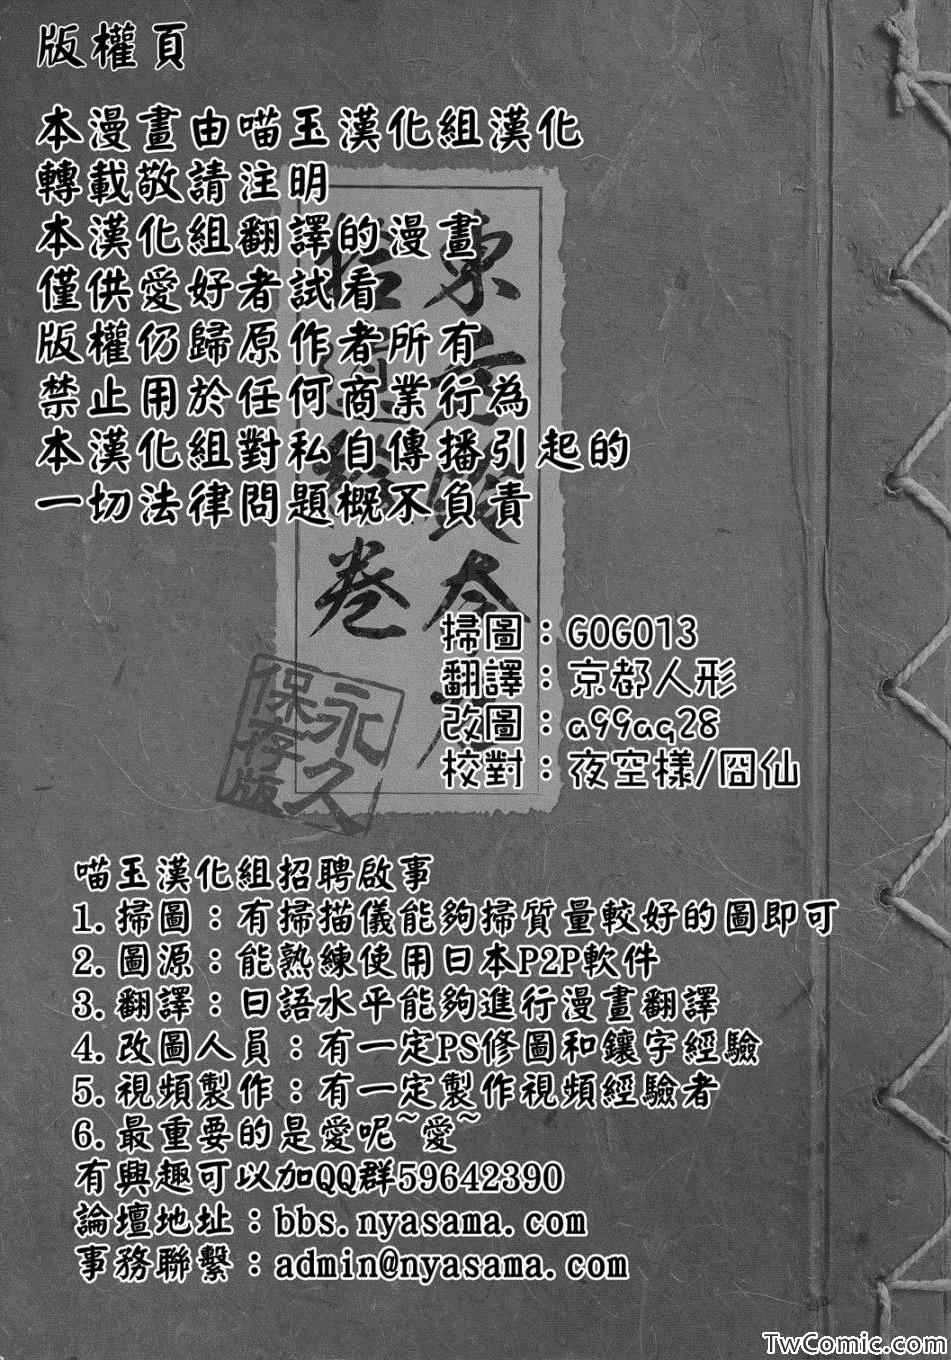 版權頁
本漫畫由喵玉漢化組漢化
轉載敬請注明
本漢化組翻譯的漫畫
僅供愛好者試看
版權仍歸原作者所有
禁止用於任何商業行為
本漢化組對私自傳播引起的
一切法律問題概不負責
東方
卷
永久
保存版
掃圖：GOGO13
翻譯：京都人形
改圖：a99aq28
校對：夜空樣/囧仙
喵玉漢化組招聘啟事
1.掃圖：有掃描儀能夠掃質量較好的圖即可
2.圖源：能熟練使用日本P2P軟件
3.翻譯：日語水平能夠進行漫畫翻譯
4.改圖人員：有一定PS修圖和鑲字經驗
5.視頻製作：有一定製作視頻經驗者
6.最重要的是愛呢~愛~
有興趣可以加QQ群59642390
論壇地址：bbs.nyasama.com
事務聯繫：admin@nyasama.com
TwComic.com